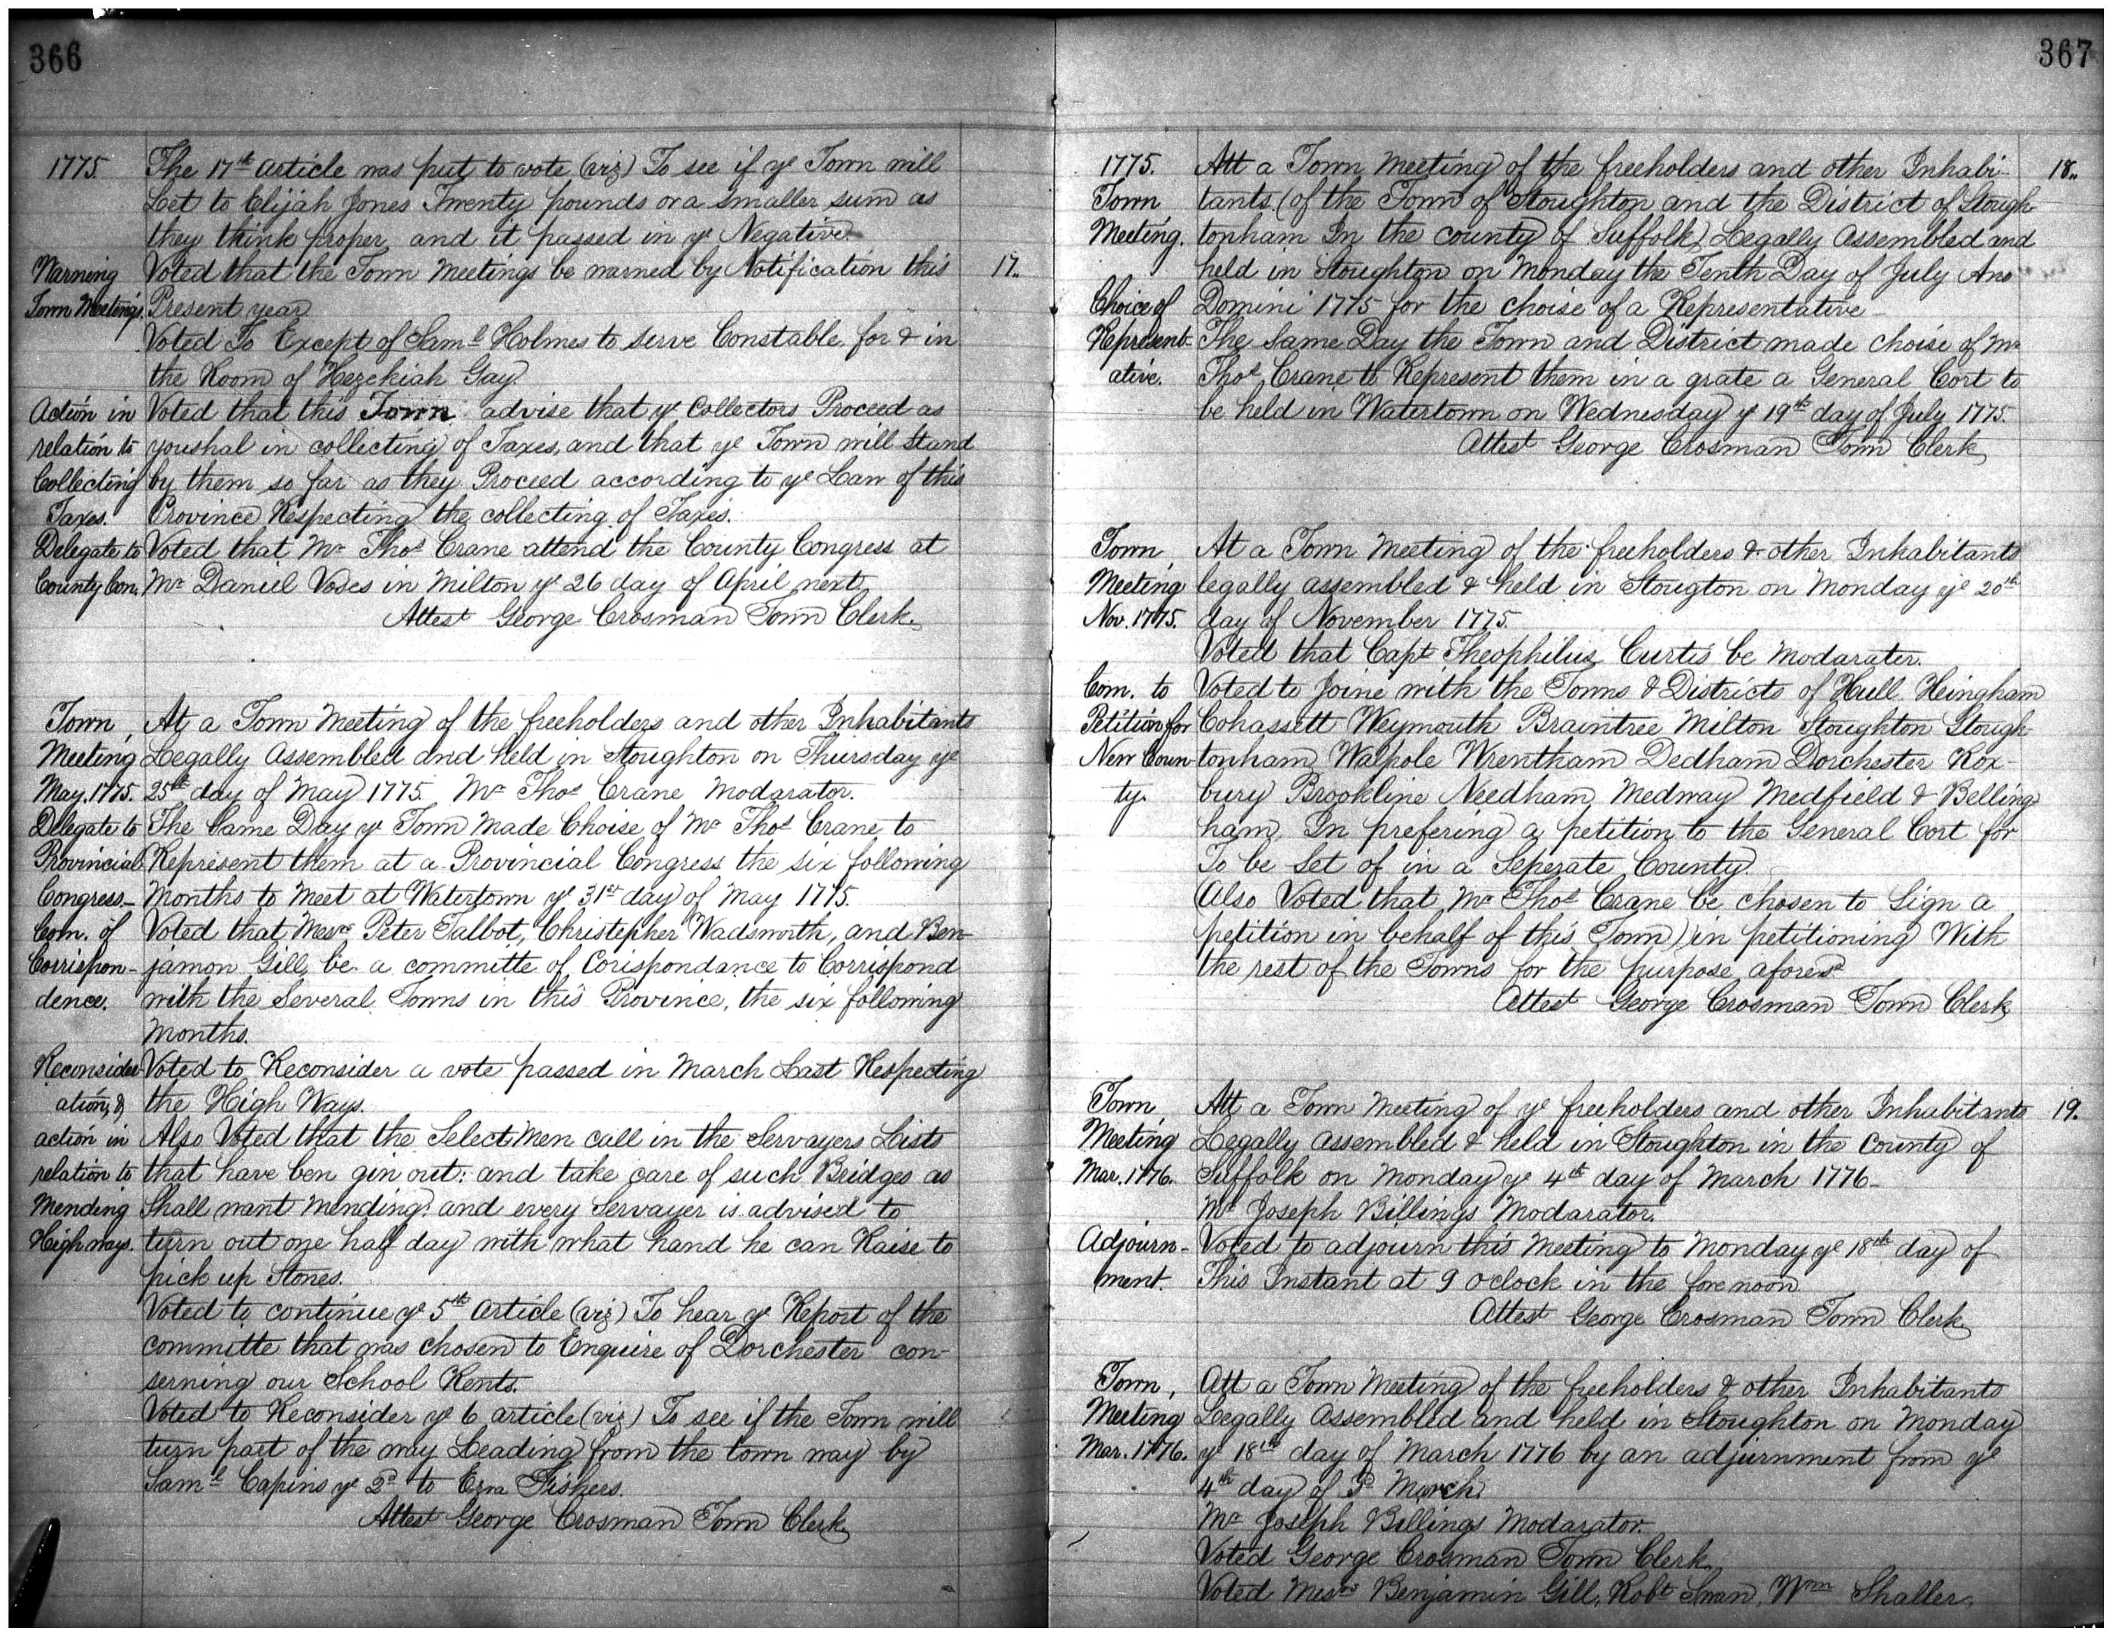 366
1775.
The 17th article was put to vote (viz) To see if ye Town will
Let to Elijah Jones Twenty pounds or a smaller sum as
they think proper, and it passed in ye Negative.
Warning
Town Meetings.
Voted that the Town meetings be warned by Notification this
17.
Present year.
Voted To Except of Saml Holmes to serve Constable for & in
the Room of Hezekiah Gay.
Action in
relation to
Collecting
Taxes.
Voted that this Town advise that ye Collectors Proceed as
youshal in collecting of Taxes, and that ye Town will Stand
by them so far as they Proceed according to ye Law of this
Province Respecting the collecting of Taxes.
Delegate to
County Con.
Voted that Mr Thos Crane attend the County Congress at
Mr Daniel Voses in Milton ye 26 day of April next.
Attest George Crosman Town Clerk.
Town
Meeting
May. 1775.
At a Town Meeting of the freeholders and other Inhabitants
Legally Assembled and held in Stoughton on Thursday ye
25th day of May 1775. Mr Thos Crane Modarator.
Delegate to
Provincial
Congress-
The Same Day ye Town Made Choise of Mr Thos Crane to
Represent them at a Provincial Congress the six following
Months to Meet at Watertown ye 31st day of May 1775.
Com. of
Corrispon-
dence.
Voted that Mesrs Peter Talbot, Christepher Wadsworth, and Ben-
jamon Gill, be a committe of Corispondance to Corrispond
with the Several Towns in this Province, the six following
Months.
Reconsider-
ation, &
action in
relation to
Mending
Highways.
Voted to Reconsider a vote passed in March Last Respecting
the High Ways.
Also Voted that the Select Men call in the Servayers Lists
that have ben gin out: and take care of such Bridges as
Shall want mending: and every Servayer is advised to
turn out one half day with what hand he can Raise to
pick up Stones.
Voted to continue ye 5th article (viz) To hear ye Report of the
committe that was chosen to Enquire of Dorchester con-
serning our School Rents.
Voted to Reconsider ye 6 article (viz) To see if the Town will
turn part of the way Leading from the town way by
Saml Capins ye 2d to Ezra Fishers.
Attest George Crosman Town Clerk
367
1775.
Town
Meeting.
Att a Town Meeting of the freeholders and other Inhabi-
18.
tants (of the Town of Stoughton and the District of Stough-
tonham In the county of Suffolk) Legally Assembled and
held in Stoughton on Monday the Tenth Day of July Ano
Choice of
Represent-
ative.
Domini 1775 for the choise of a Representative
The Same Day the Town and District made choise of Mr
Thos Crane to Represent them in a grate a General Cort to
be held in Watertown on Wednesday ye 19th day of July 1775.
Attest George Crosman Town Clerk
Town
Meeting
Nov. 1775.
At a Town Meeting of the freeholders & other Inhabitants
legally assembled & held in Stougton on Monday ye 20th
day of November 1775.
Voted that Capt Theophilus Curtis be Modarater.
Com. to
Petition for
New Coun
ty.
Voted to Joine with the Towns & Districts of Hull Heingham
Cohassett Weymouth Braintree Milton Stoughton Stough-
tonham Walpole Wrentham Dedham Dorchester Rox-
bury Brookline Needham Medway Medfield & Belling
ham In prefering a petition to the General Cort for
To be Set of in a Seperate County.
(Also Voted that Mr Thos Crane be chosen to Sign a
petition in behalf of this Town) in petitioning With
the rest of the Towns for the purpose aforesd
Attest George Crosman Town Clerk
Town
Meeting
Mar. 1776.
Att a Town Meeting of ye freeholders and other Inhabitants
19.
Legally Assembled & held in Stoughton in the County of
Suffolk on Monday ye 4th day of March 1776-
Mr Joseph Billings Modarator.
Adjourn-
ment.
Voted to adjourn this Meeting to Monday ye 18th day of
This Instant at 9 oclock in the forenoon.
Attest George Crosman Town Clerk
Town
Meeting
Mar. 1776.
Att a Town Meeting of the freeholders & other Inhabitants
Legally Assembled and held in Stoughton on Monday
ye 18th day of March 1776 by an adjurnment from ye
4th day of Sd March.
Mr Joseph Billings Modarator.
Voted George Crosman Town Clerk
Voted Mesrs Benjamin Gill, Robt Swan, Wm Shaller,